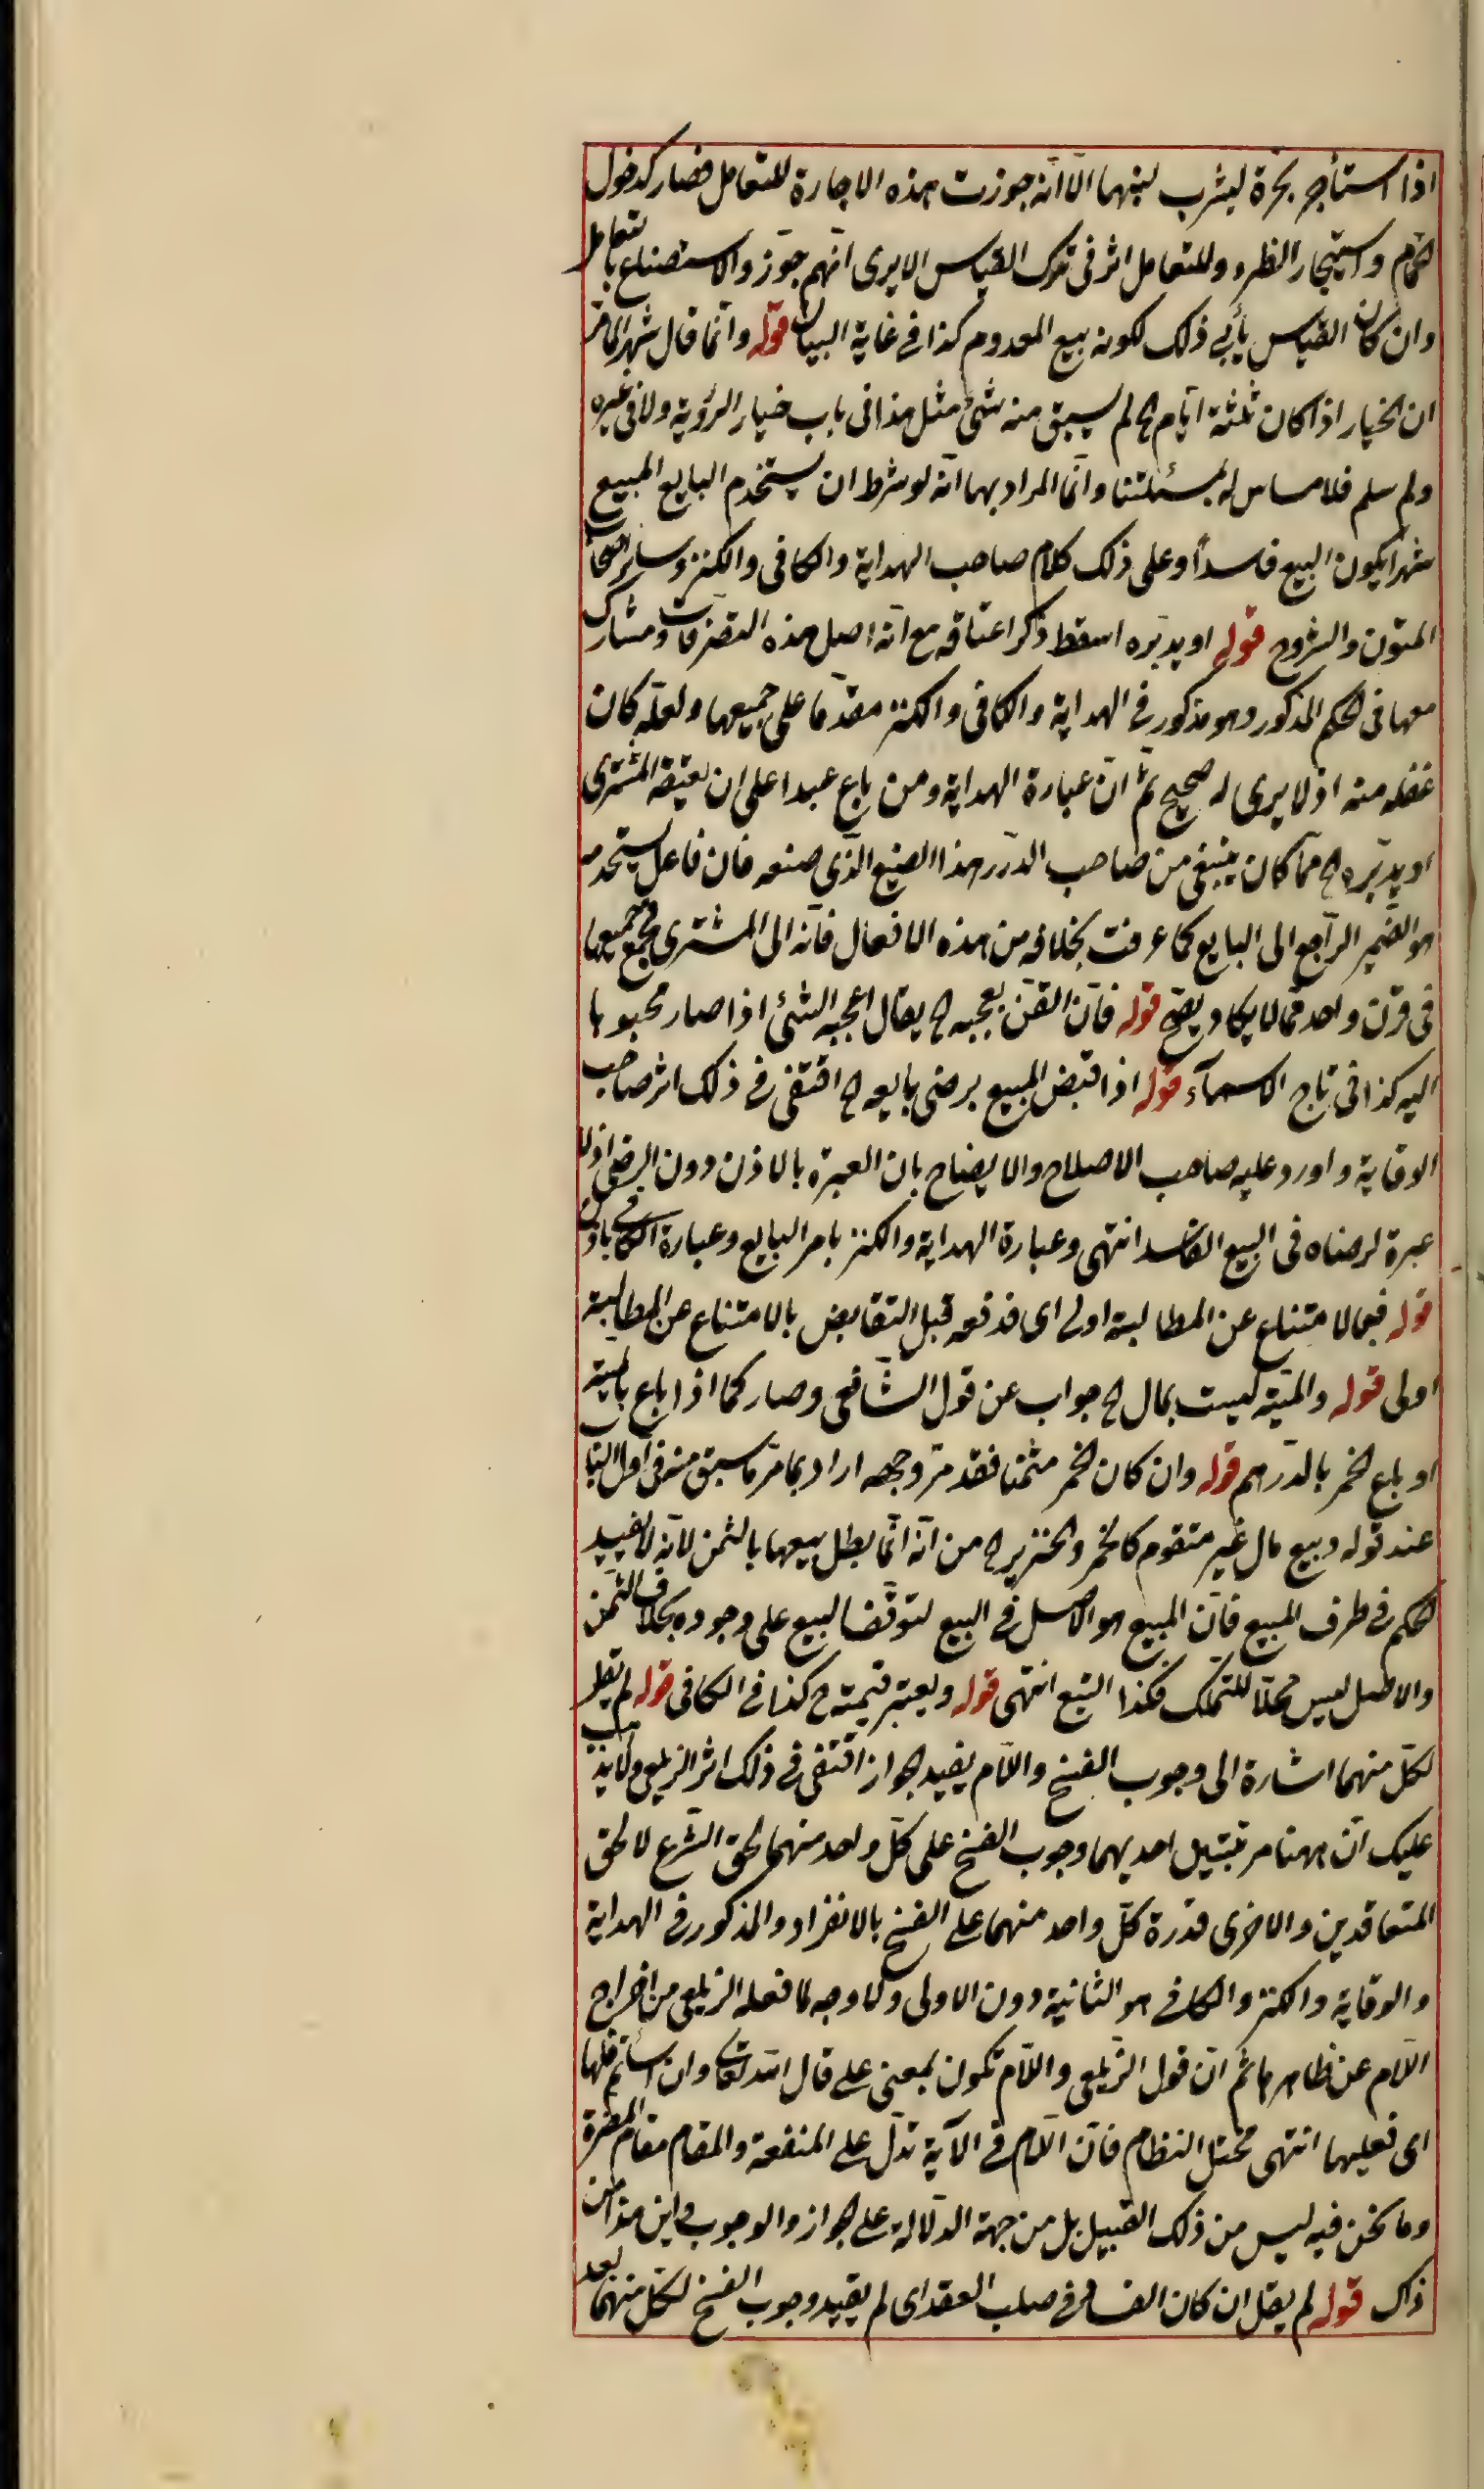 اذا استأجر بحرة ليشرب لبنها الا انه جوزت هذه الاجارة للتعامل فصار كدخول
الحمام واستيجار الظئر وللتعامل اثر فى ترك القياس الا يرى انهم جوزوا الاستصناع بالتعامل
وان كان القياس يأبى ذلك لكونه بيع المعدوم كذا فى غاية البيان قوله وانما قال شهرا لما مر
ان الخيار اذا كان ثلثة ايام الخ لم يسبق منه شئ مثل هذا فى باب خيار الرؤية ولا فى غيره
ولم سلم فلا مساس له بمسئلتنا وانما المراد بها انه لو شرط ان يستخدم البايع المبيع
شهرا يكون البيع فاسدا وعلى ذلك كلام صاحب الهداية والكافى والكنز وسائر اصحاب
المتون والشروح قوله او يدبره اسقط ذكر اعتاقه مع انه اصل هذه التصرفات ومشارك
معها فى الحكم المذكور وهو مذكور فى الهداية والكافى والكنز مقدما على جميعها ولعله كان
غفلة منه اذ لا يرى له صحيح ثم ان عبارة الهداية ومن باع عبدا على ان يعتقه المشترى
او يدبره الخ مما كان ينبغى من صاحب الدرر هذا الصنيع الذى صنعه فان فاعل يستخدمه
هو الضمير الراجع الى البايع كما عرفت بخلافه من هذه الافعال فانه الى المشترى فجمع جميعها
فى قرن واحد مما لا يكاد يصح قوله فان القن يعجبه الخ يقال اعجبه الشئ اذا صار محبوبا
اليه كذا فى تاج الاسماء قوله اذا قبض المبيع برضى بايعه الخ اقتفى فى ذلك اثر صاحب
الوقاية واورد عليه صاحب الاصلاح والايضاح بان العبرة بالاذن دون الرضى اذ لا
عبرة لرضاه فى البيع الفاسد انتهى وعبارة الهداية والكنز بامر البايع وعبارة الكافى باذن
قوله فبالامتناع عن المطالبة اولى اى فدفعه قبل التقابض بالامتناع عن المطالبة
اولى قوله والميتة ليست بمال الخ جواب عن قول الشافعى وصار كما اذا باع بالميتة
او باع الخمر بالدراهم قوله وان كان الخمر مثمنا فقد مر وجهه اراد بما مر ما سبق منه فى اول الباب
عند قوله وبيع مال غير متقوم كالخمر والخنزير الخ من انه انما بطل بيعها بالثمن لانه لا يفيد
الحكم فى طرف المبيع فان المبيع هو الاصل فى البيع لتوقف البيع على وجوده بخلاف الثمن
والاصل ليس محلا للتملك فكذا التبع انتهى قوله ويعتبر قيمته الخ كذا فى الكافى قوله لم يقل
لكل منهما اشارة الى وجوب الفسخ واللام يفيد الجواز اقتفى فى ذلك اثر الزيلعى ولا يذهب
عليك ان ههنا مرتبتين احديهما وجوب الفسخ على كل واحد منهما لحق الشرع لا لحق
المتعاقدين والاخرى قدرة كل واحد منهما على الفسخ بالانفراد والمذكور فى الهداية
والوقاية والكنز والكافى هو الثانية دون الاولى ولا وجه لما فعله الزيلعى من اخراج
اللام عن ظاهرها ثم ان قول الزيلعى واللام تكون بمعنى على قال الله تعالى وان اسأتم فلها
اى فعليها انتهى مختل النظام فان اللام فى الآية تدل على المنفعة والمقام مقام المضرة
وما نحن فيه ليس من ذلك القبيل بل من جهة الدلالة على الجواز والوجوب واين هذا من
ذاك قوله لم يقل ان كان الفساد فى صلب العقد اى لم يقيد وجوب الفسخ لكل منهما بعد